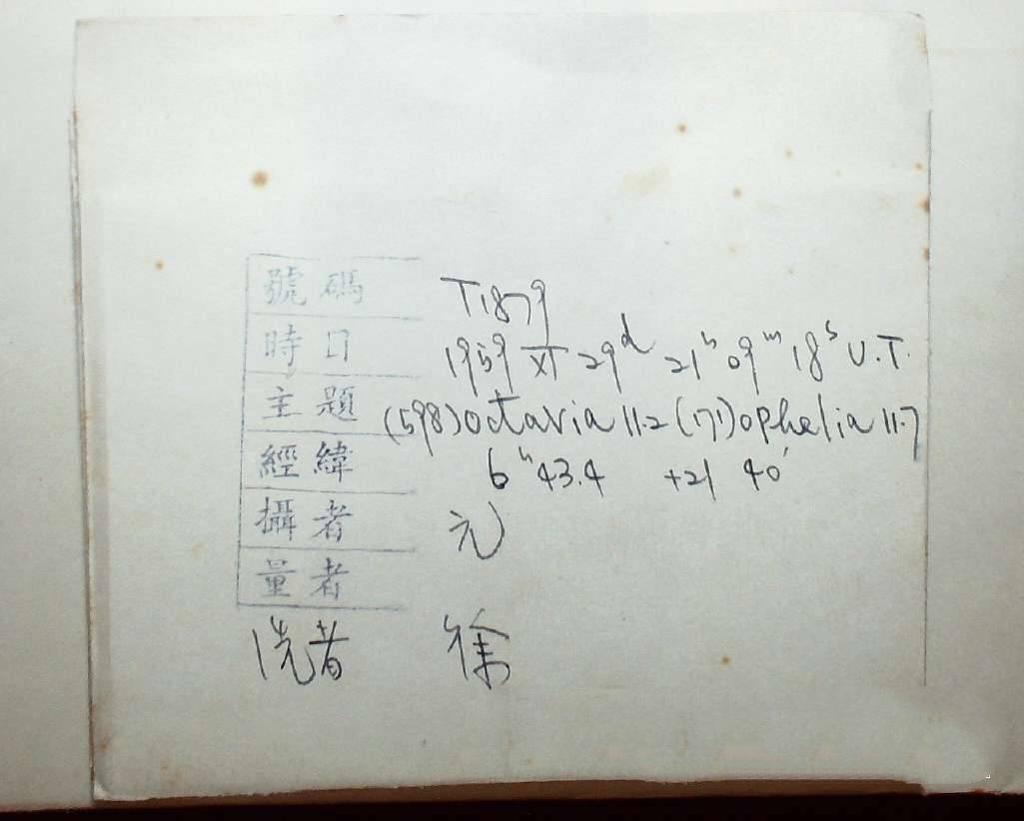 號碼 T1879
時日 1959 XI 29ᵈ 21ʰ 09ᵐ 18ˢ U.T.
主題 (598)Octavia 11.2 (171)Ophelia 11.7
經緯 6ʰ 43.4 +21 40′
攝者 元
量者
洗者 徐